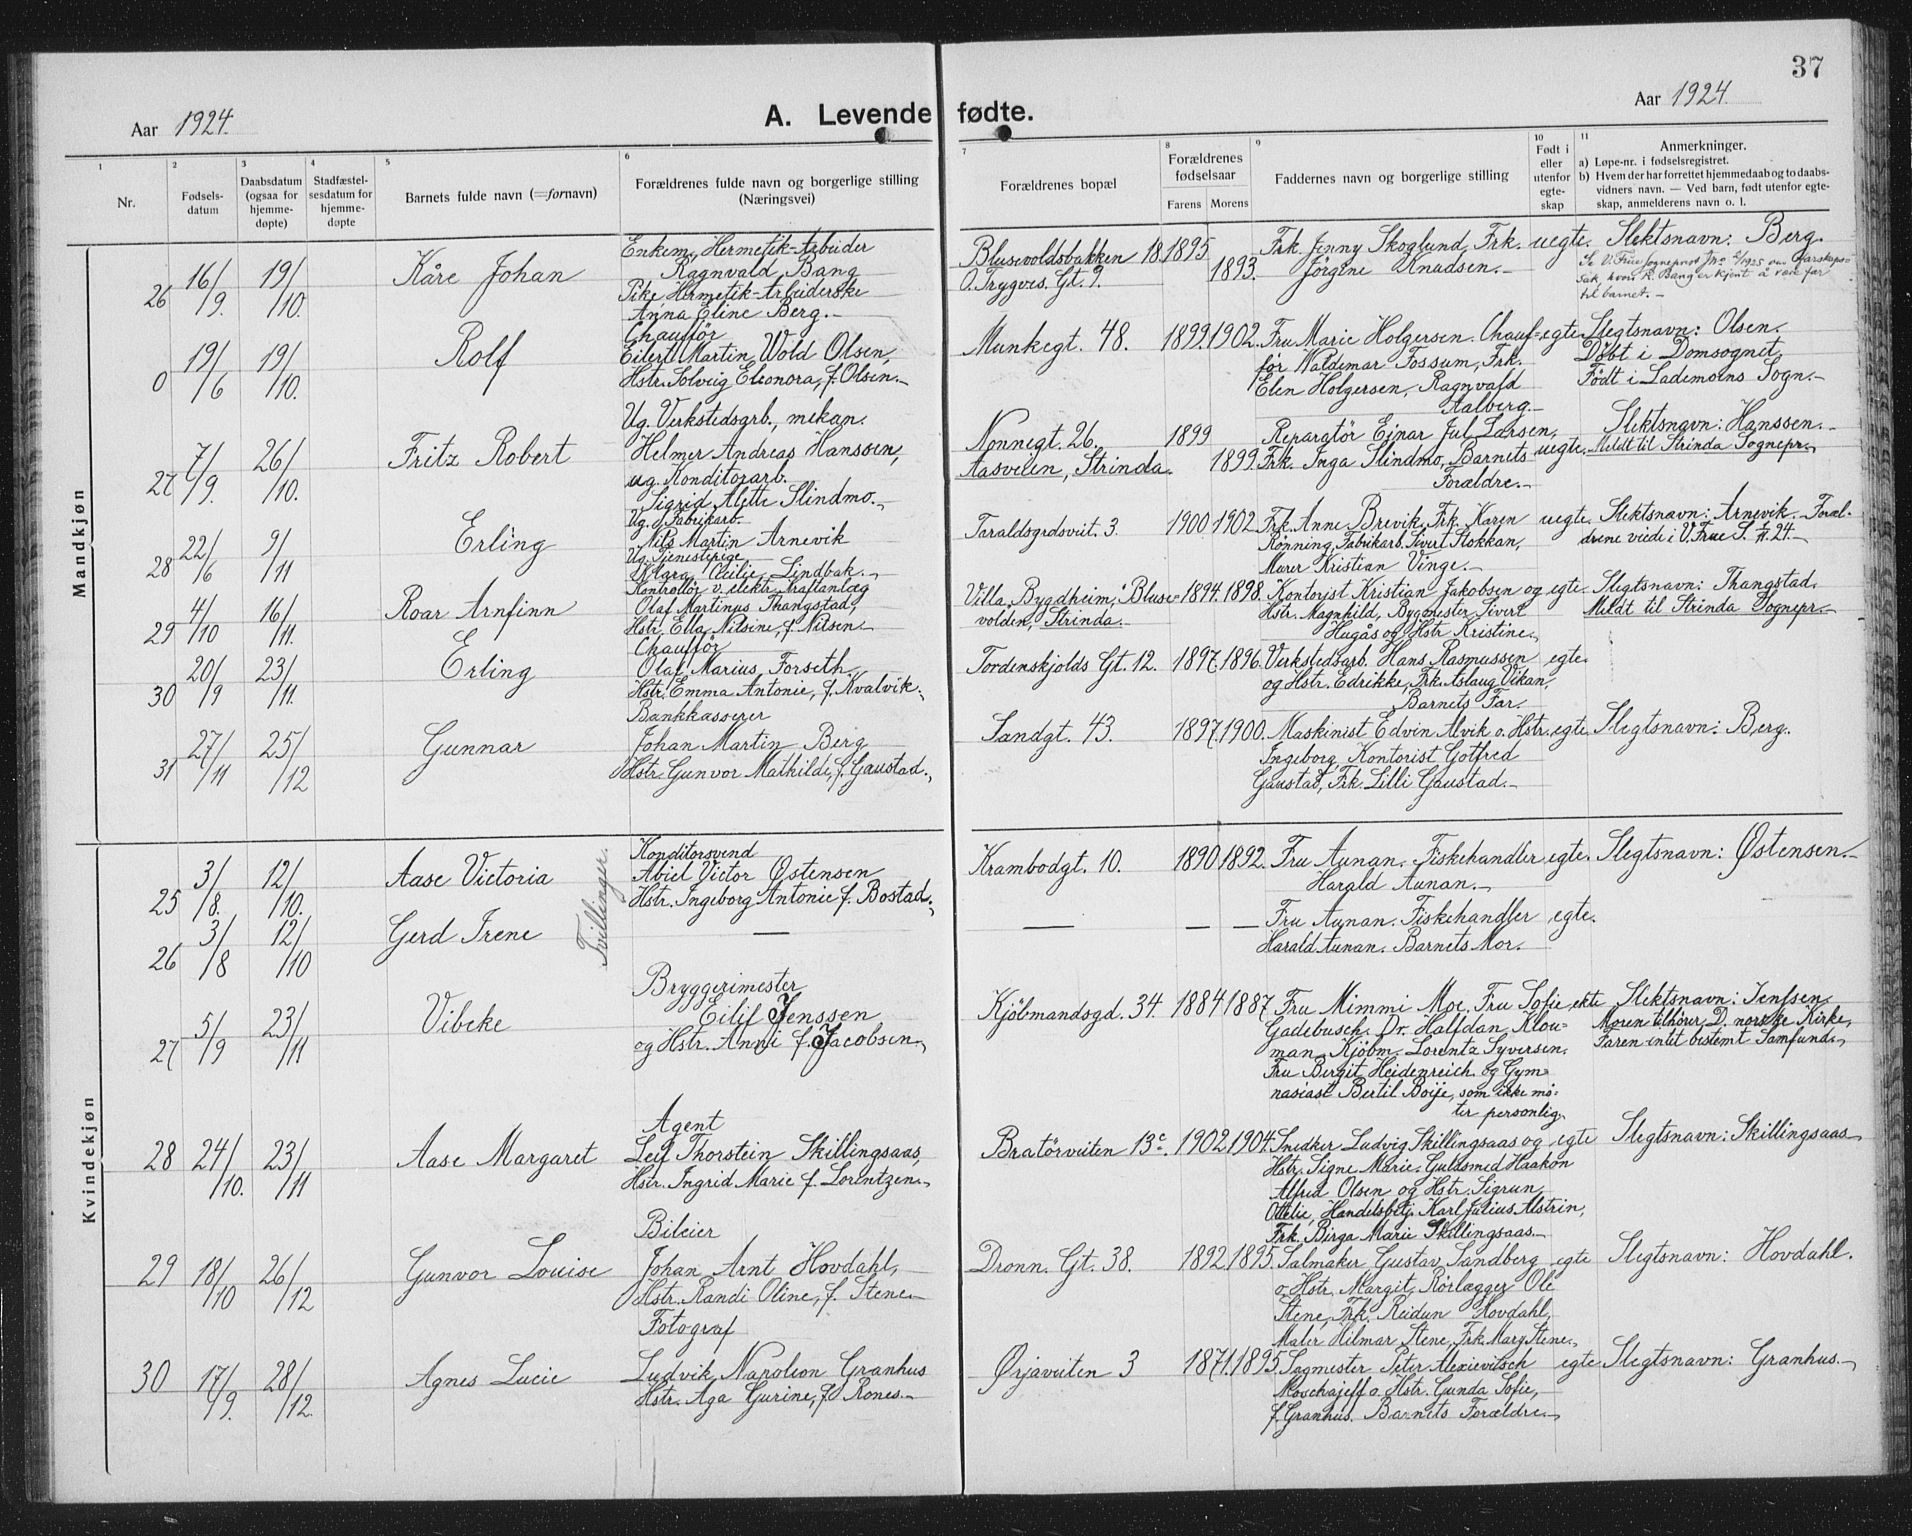 37
Aar 1924.
A. Levende fødte.
Aar 1924.
1 2 3 4 5 6 7 8 9 10 11
Nr.
Fødsels-
datum
Daabsdatum
(ogsaa for
hjemme-
døpte)
Stadfæstel-
sesdatum for
hjemme-
døpte
Barnets fulde navn (=fornavn)
Forældrenes fulde navn og borgerlige stilling
(Næringsvei)
Forældrenes bopæl
Forældrenes
fødselsaar
Farens Morens
Faddernes navn og borgerlige stilling
Født i
eller
utenfor
egte-
skap
Anmerkninger.
a) Løpe-nr. i fødselsregistret.
b) Hvem der har forrettet hjemmedaab og to daabs-
vidners navn. — Ved barn, født utenfor egte-
skap, anmelderens navn o. l.
Mandkjøn
26 16/9. 19/10. Kåre Johan
Enkem. Hermetik-Arbeider
Ragnvald Bang
Pike Hermetik-Arbeiderske
Anna Eline Berg.-
Blusevoldsbakken 18. 1895
O. Trygves. Gt. 9. 1893.
Frk. Jenny Skoglund, Frk.
Jörgine Knudsen.-
uegte. Slektsnavn: Berg.
sak, hvor R. Bang er kjent å være far
til barnet.-
0 19/6 19/10. Rolf
Chaufför
Eilert Martin Wold Olsen,
Hstr. Solveig Eleonora, f. Olsen.-
Munkegt. 48. 1899. 1902.
Fru Marie Holgersen. Chauf=
för Waldemar Fossum, Frk.
Elen Holgersen, Ragnvald
Aalberg.-
egte. Slegtsnavn: Olsen.
Döbt i Domsognet,
Födt i Lademoens Sogn.-
27 7/9. 26/10. Fritz Robert
Ug. Verkstedsarb., mekan.
Helmer Andreas Hanssen,
ug. Konditorarb.
Sigrid Alette Slindmo.-
Nonnegt. 26. 1899
Aasveien, Strinda. 1899
Reparatör Ejnar Jul Larsen,
Frk. Inga Slindmo, Barnets
Forældre.-
uegte. Slektsnavn: Hanssen.-
Meldt til Strinda Sognepr.
28 22/6 9/11 Erling
Ug. Fabrikarb.
Nils Martin Arnevik
Ug. Tjenestepige
Klara Cecilie Lindbak.-
Taraldsgdsveit. 3. 1900 1902.
Frk. Anne Brevik, Frk. Karen
Rönning, Fabrikarb. Sivert Stokkan,
Murer Kristian Vinge.-
uegte. Slektsnavn: Arnevik. Foræl-
drene viede i V. Frue S.
29 4/10 16/11. Roar Arnfinn
Kontrollör v. elektr. Kraftanlæg
Olaf Martinus Thangstad,
Hstr. Ella Nilsine, f. Nilsen.-
Villa „Bygdheim,“ Bluse=
volden, Strinda.-
1894. 1898.
Kontorist Kristian Jakobsen og
Hstr. Magnhild, Bygmester Sivert
Hugås og Hstr Kristine.
egte Slegtsnavn: Thangstad.
Meldt til Strinda Sognepr.-
30 20/9 23/11. Erling
Chaufför
Olaf Marius Forseth.
Hstr. Emma Antonie, f. Kvalvik.
Tordenskjolds Gt. 12. 1897. 1896.
Verkstedsarb. Hans Rasmussen
og Hstr. Edrikke, Frk. Aslaug Vikan,
Barnets Far.
egte.
31 27/11 25/12 Gunnar
Bankkasserer
Johan Martin Berg
Hstr. Gunvor Mathilde, f. Gaustad.
Sandgt. 43. 1897. 1900.
Maskinist Edvin Alvik o. Hstr.
Ingeborg, Kontorist Gotfred
Gaustad, Frk. Lilli Gaustad.-
egte. Slegtsnavn: Berg.
Kvindekjøn
25 3/8. 12/10. Aase Victoria
Tvillinger.
Konditorsvend
Abiel Victor Östensen
Hstr. Ingeborg Antonie f. Bostad.
Krambodgt. 10. 1890. 1892.
Fru Aunan. Fiskehandler
Harald Aunan.-
egte. Slegtsnavn: Østensen.-
26 3/8 12/10 Gerd Irene
— — — —
Fru Aunan. Fiskehandler
Harald Aunan. Barnets Mor.
egte.
27 5/9 23/11 Vibeke
Bryggerimester
Eilif Jenssen
og Hstr. Anni f. Jacobsen
Kjöbmandsgd. 34. 1884 1887
Fru Mimmi Moe, Fru Sofie
Gadebusch, Dr. Halfdan Klou=
man, Kjöbm. Lorentz Syversen,
Fru Bergit Heidenreich og Gym=
nasiast Bertil Boije, som ikke mö=
ter personlig.
ekte Slektsnavn: Jenssen
Moren tilhörer D. norske Kirke,
Faren intet bestemt Samfund.
28 24/10. 23/11 Aase Margaret
Agent
Leif Thorstein Skillingsaas,
Hstr. Ingrid Marie f. Lorentzen.
Bratörveiten 13c. 1902 1904.
Snedker Ludvig Skillingsaas og
Hstr. Signe Marie. Guldsmed Haakon
Alfred Olsen og Hstr. Sigrun
Ottelie, Handelsbetj. Karl Julius Alstrin,
Frk. Birga Marie Skillingsaas.-
egte Slegtsnavn: Skillingsaas
29 18/10 26/12 Gunvor Louise
Bileier
Johan Arnt Hovdahl,
Hstr. Randi Oline, f. Stene
Dronn. Gt. 38. 1892. 1895.
Salmaker Gustav Sandberg
o. Hstr. Margit, Rörlægger Ole
Stene, Frk. Reidun Hovdahl,
Maler Hilmar Stene, Frk. Mary Stene.
egte Slegtsnavn: Hovdahl.
30 17/9. 28/12 Agnes Lucie
Fotograf
Ludvik Napoleon Granhus
Hstr. Aga Gurine, f. Rones.-
Örjaveiten 3 1871. 1895
Sagmester Peter Alexievitsch
Moschajeff o. Hstr. Gunda Sofie,
f. Granhus. Barnets Forældre.
egte Slegtsnavn: Granhus.